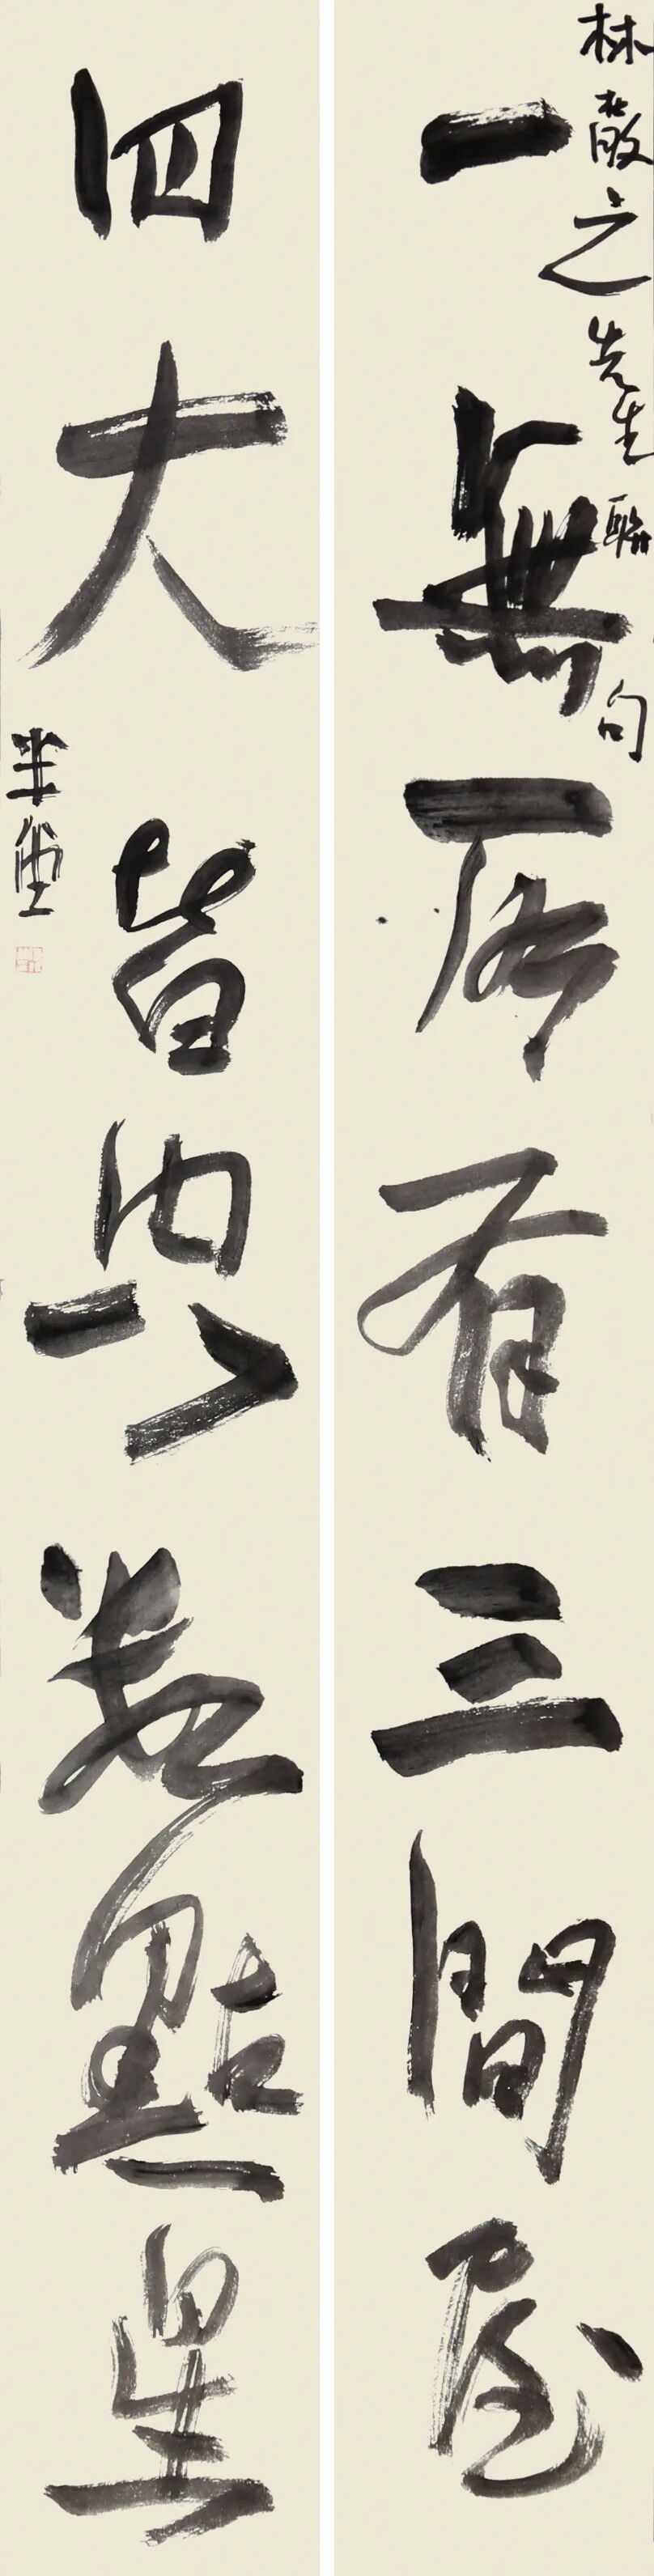 林散之先生聯句
一無所有三間屋
四大皆空數點星